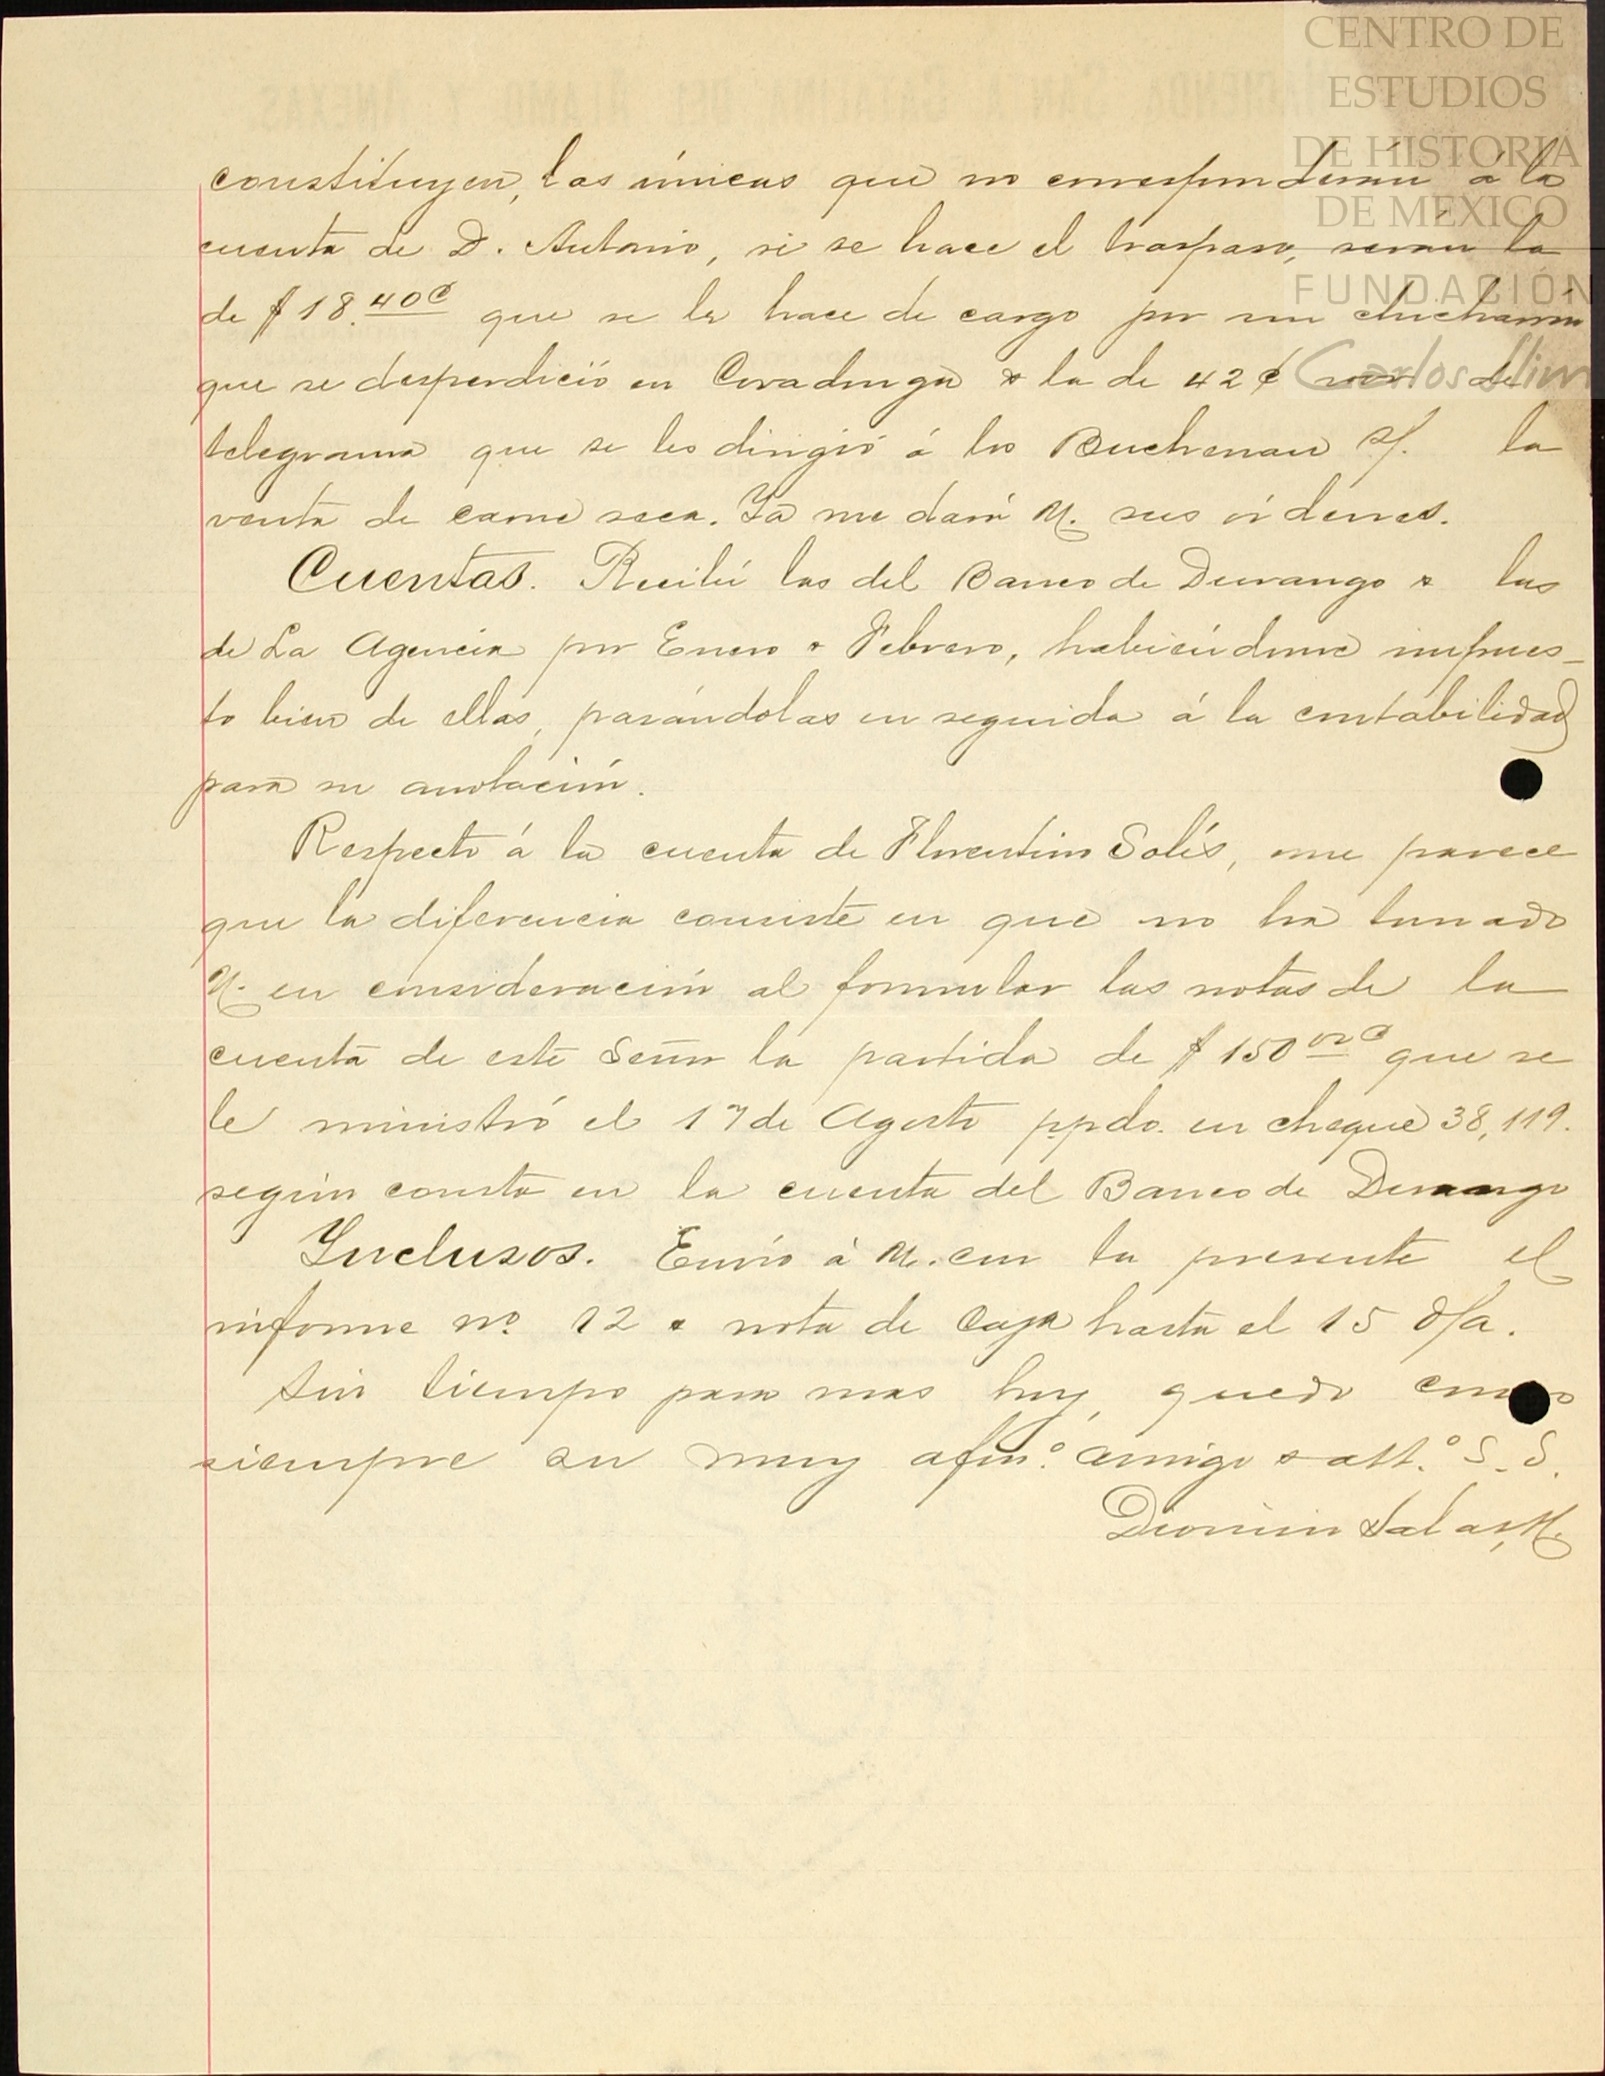 CENTRO DE
ESTUDIOS
DE HISTORIA
DE MÉXICO
FUNDACIÓN
Carlos Slim
constituyen, las únicas que no corresponderán á la
cuenta de D. Antonio, si se hace el traspaso, serán la
de $18.40¢ que se le hace de cargo por un chicharrón
que se desperdició en Covadonga & la de 42¢ de
telegrama que se les dirigió á los Buchenau s/. la
venta de carne seca. Ya me dará U. sus órdenes.
Cuentas. Recibí las del Banco de Durango & las
de La Agencia por Enero & Febrero, habiéndome impues-
to bien de ellas, pasándolas en seguida á la contabilidad
para su anotación.
Respecto á la cuenta de Florentino Solís, me parece
que la diferencia consiste en que no ha tomado
U. en consideración al formular las notas de la
cuenta de este Señor la partida de $150.00¢ que se
le ministró el 17 de Agosto ppdo. en cheque 38,119.
según consta en la cuenta del Banco de Durango
Inclusos. Envío á U. con la presente el
informe no. 12 & nota de Caja hasta el 15 d/a.
Sin tiempo para mas hoy, quedo como
siempre su muy afmo. amigo & att.o S. S.
Dionisio Salas, H.